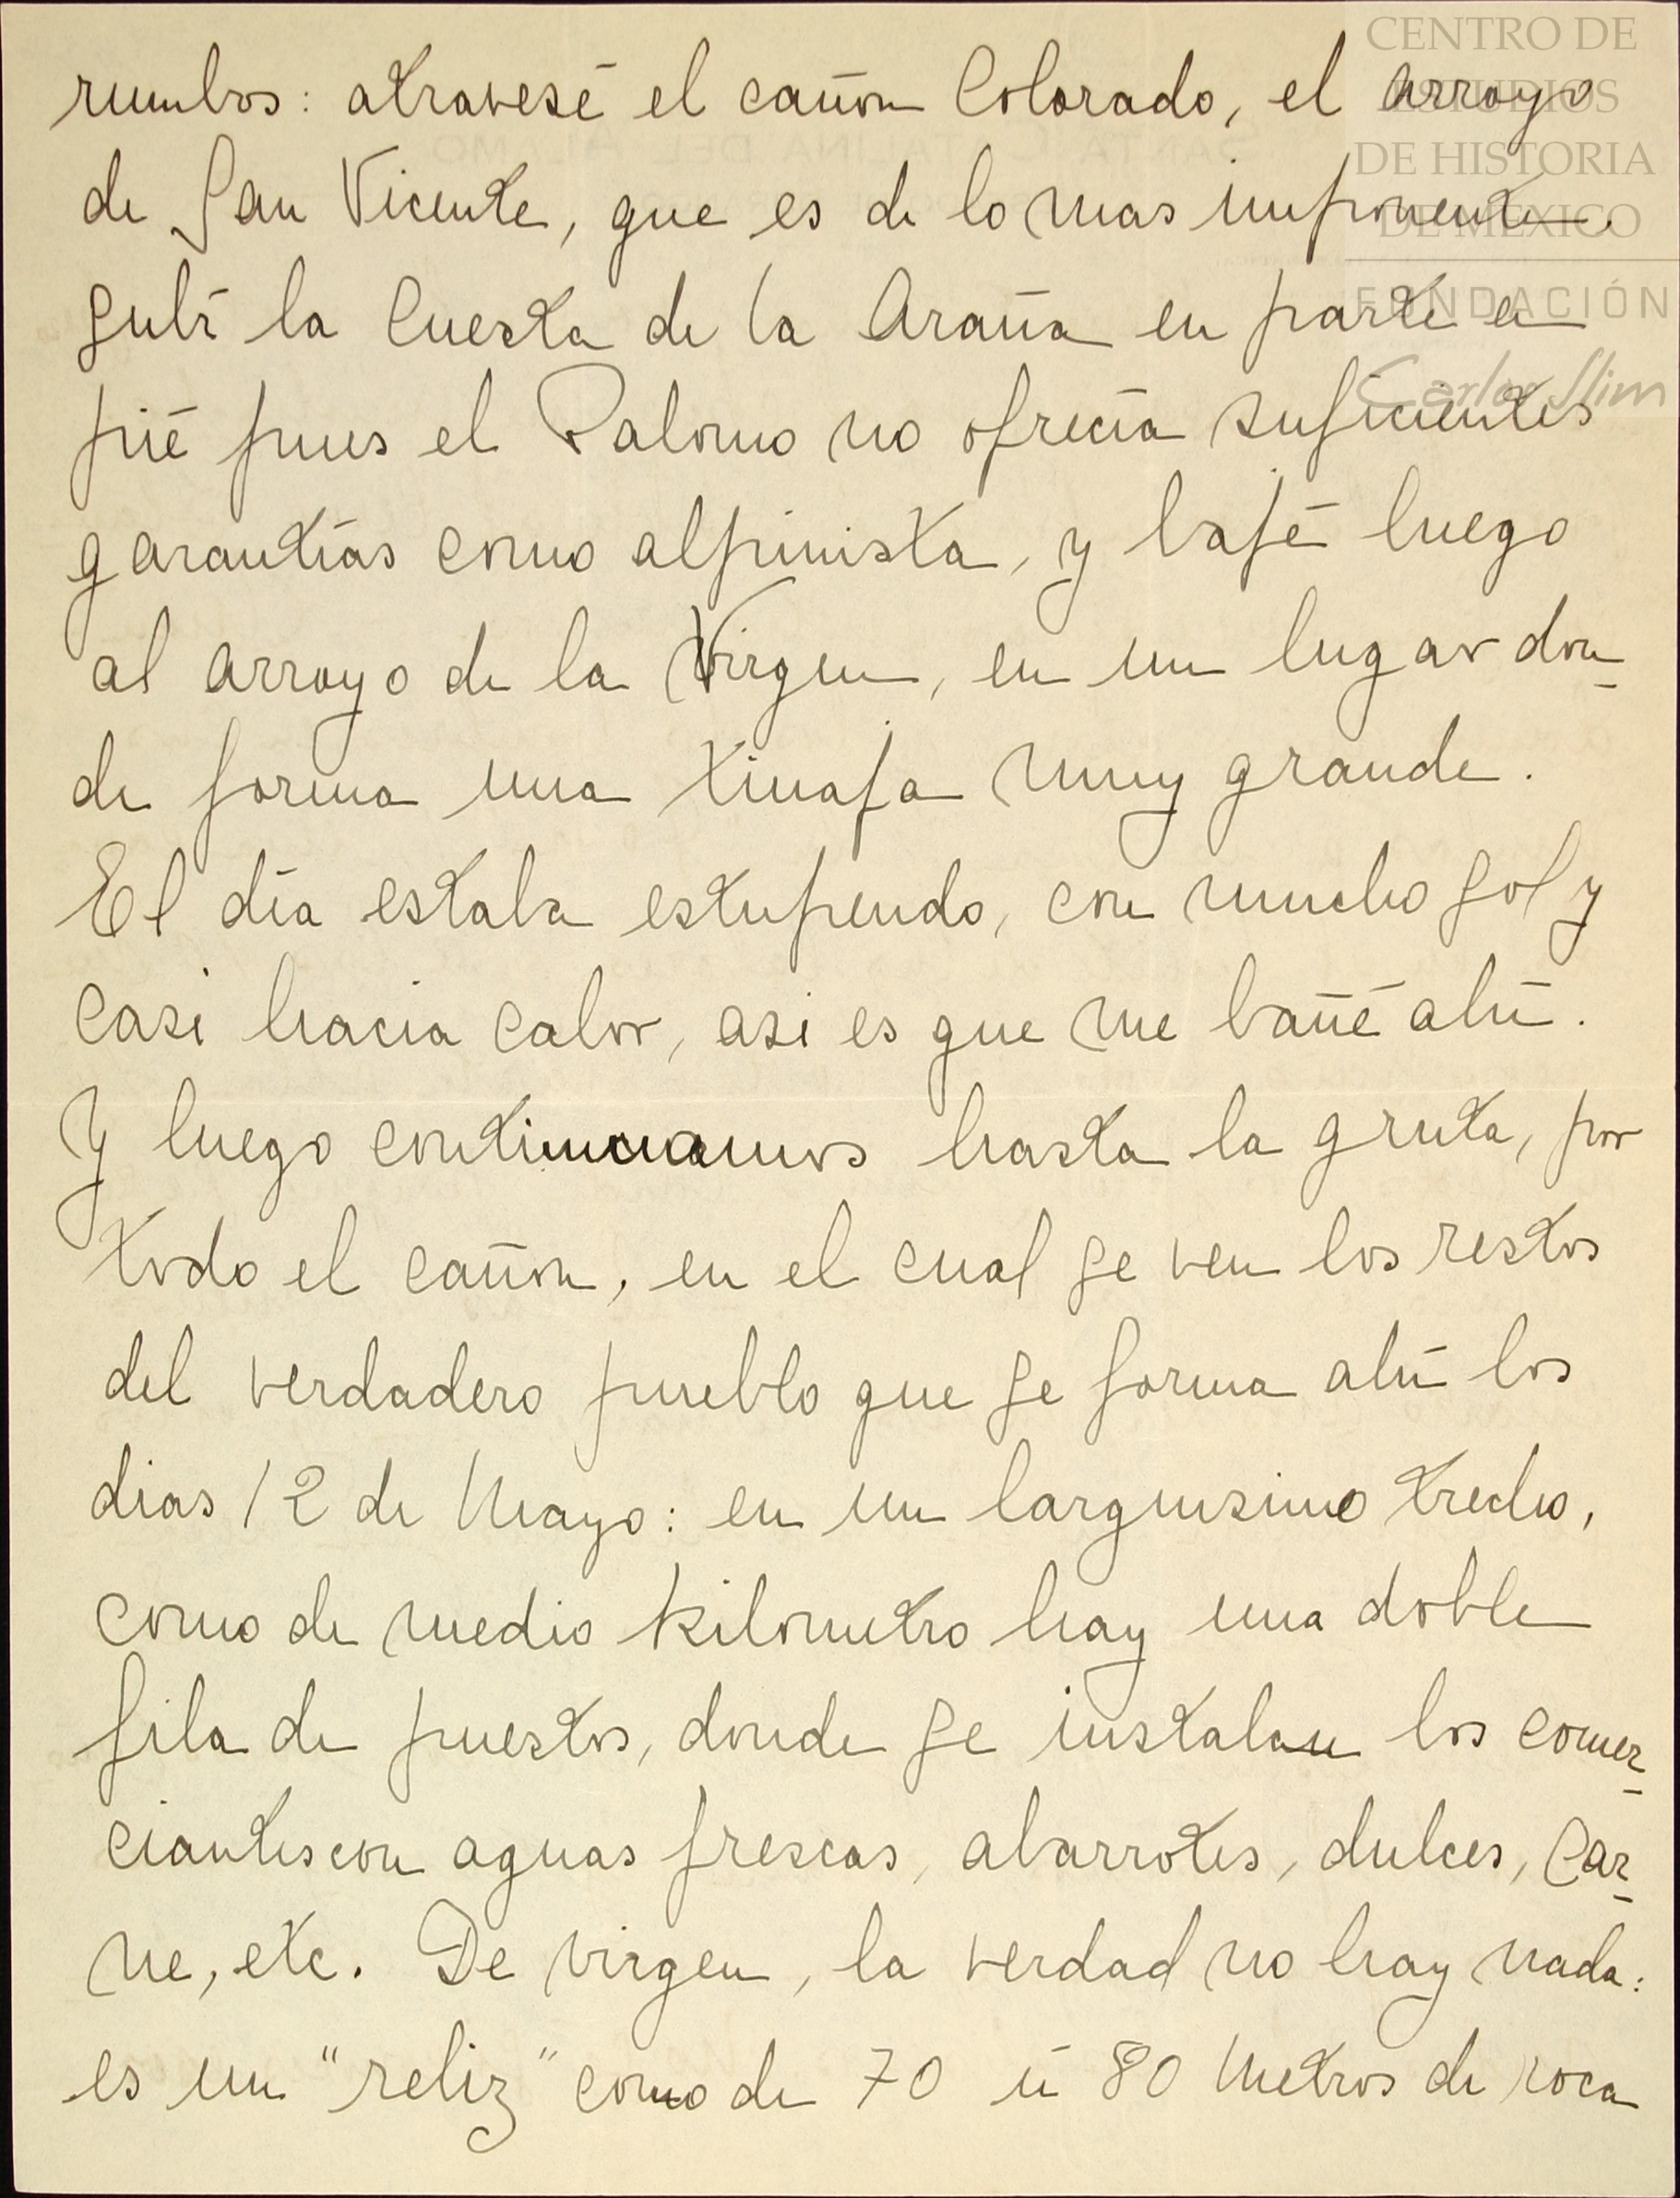 CENTRO DE
ESTUDIOS
DE HISTORIA
DE MÉXICO
FUNDACIÓN
Carlos Slim
rumbos: atravesé el cañon Colorado, el arroyo
de San Vicente, que es de lo mas imponente.
Subí la Cuesta de la Araña en parte a
pié pues el Palomo no ofrecía suficientes
garantías como alpinista, y bajé luego
al arroyo de la Virgen, en un lugar don-
de forma una tinaja muy grande.
El día estaba estupendo, con mucho sol y
casi hacia calor, asi es que me bañé ahí.
Y luego continuamos hasta la gruta, por
todo el cañon, en el cual se ven los restos
del verdadero pueblo que se forma ahí los
dias 12 de Mayo: en un larguisimo trecho,
como de medio kilometro hay una doble
fila de puestos, donde se instalan los comer-
ciantes con aguas frescas, abarrotes, dulces, car-
ne, etc. De virgen, la verdad no hay nada:
es un "reliz" como de 70 ú 80 metros de roca